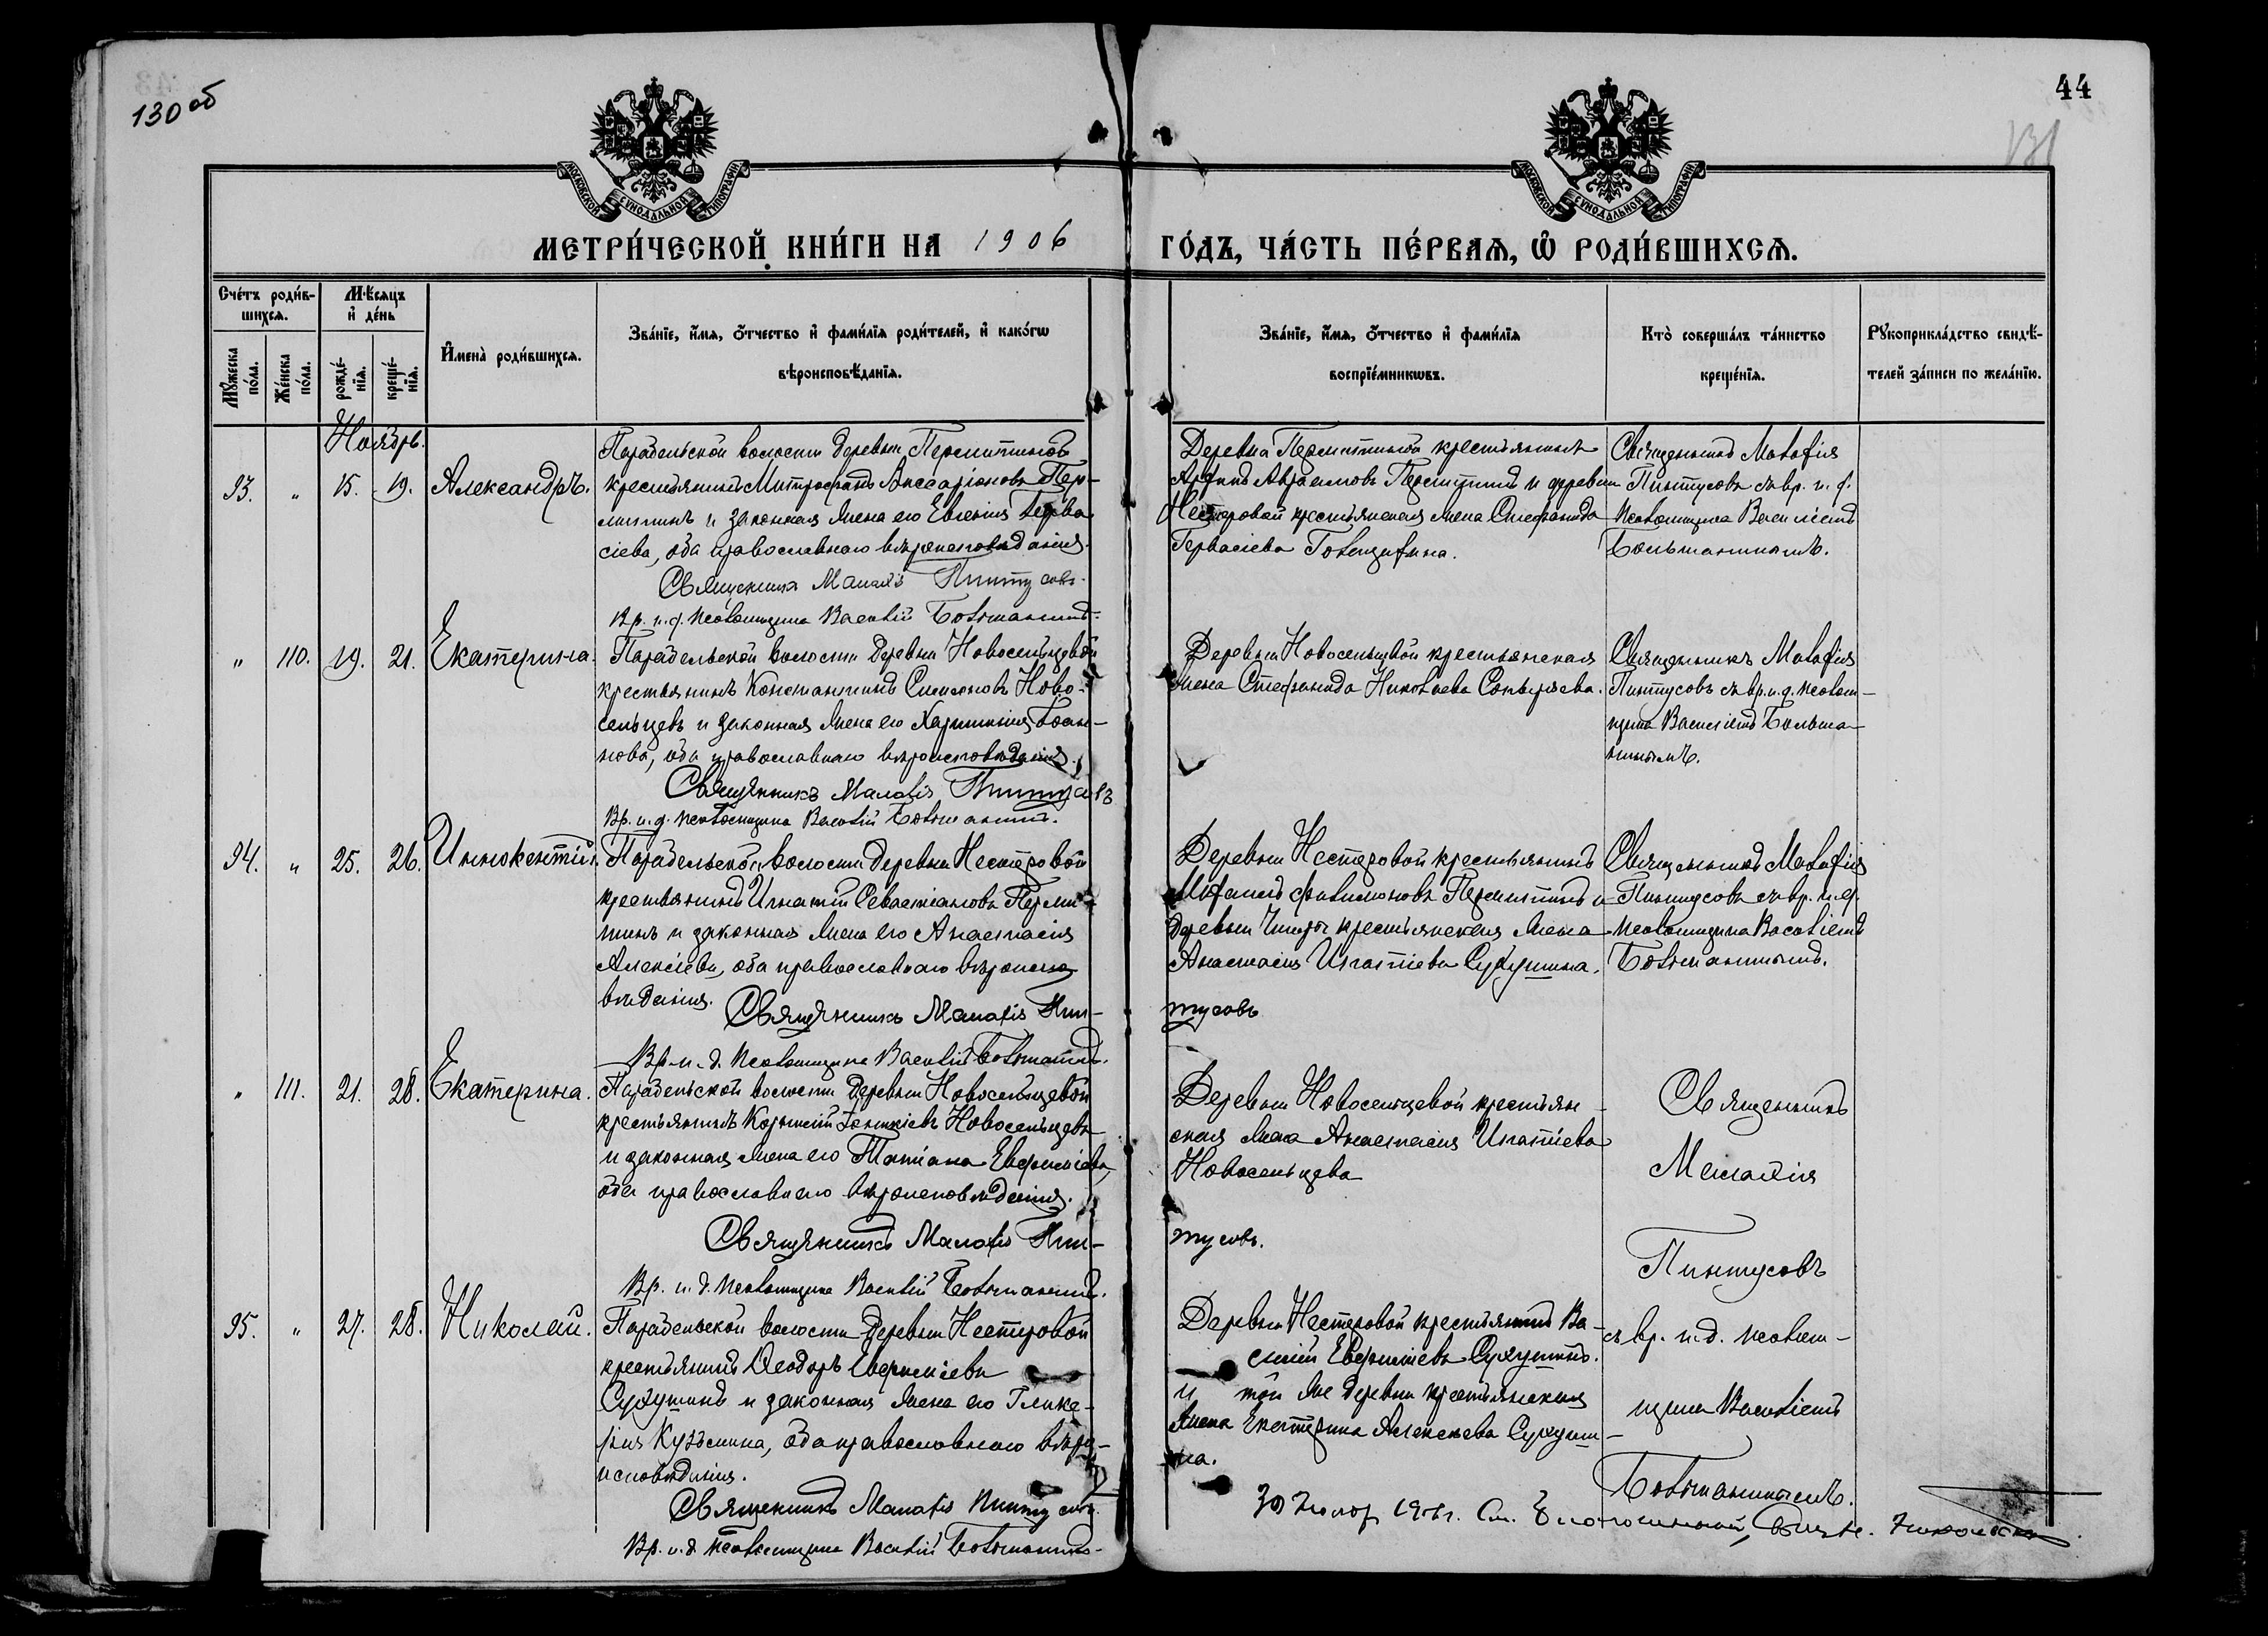 130 об
44
131
МОСКОВСКОЙ СѴНОДАЛЬНОЙ ТИПОГРАФІИ
МОСКОВСКОЙ СѴНОДАЛЬНОЙ ТИПОГРАФІИ
МЕТРИ́ЧЕСКОЙ КНИ́ГИ НА 1906
ГО́ДЪ, ЧА́СТЬ ПЕ́РВАѦ, Ѡ҆ РОДИ́ВШИХСѦ.
Сче́тъ роди́в-
шихсѧ.
Мꙋ́жеска по́ла.
Же́нска по́ла.
Мѣ́сѧцъ
и҆ де́нь
рожде́-
нїѧ.
креще́-
нїѧ.
И҆мена̀ роди́вшихсѧ.
Зва́нїе, и҆́мѧ, о҆́тчество и҆ фами́лїѧ роди́телей, и҆ како́гѡ
вѣроисповѣ́данїѧ.
Зва́нїе, и҆́мѧ, о҆́тчество и҆ фами́лїѧ
воспрїе́мникѡвъ.
Кто̀ соверша́лъ та́инство
креще́нїѧ.
Рꙋкоприкла́дство свидѣ́-
телей за́писи по жела́нїю.
Ноябрь.
93. " 15. 19. Александръ.
Парабельской волости деревни Перемитиной
крестьянинъ Митрофанъ Виссаріоновъ Пер-
митинъ и законная жена его Евгенія Герва
сіева, оба православнаго вѣроисповѣданія.
Священникъ Малахія Пинтусовъ.
Вр. и. д. псаломщика Василій Больманинъ.
крестьянинъ
Авраамовъ Пермитинъ и деревни
Нестеровой крестьянская жена Стефанида
Гервасіева Говицина.
Священникъ Малахія
Пинтусовъ съ вр. и. д.
псаломщика Василіемъ
Больманинымъ.
" 110. 19. 21. Екатерина.
Парабельской волости деревни Новосельцевой
крестьянинъ Константинъ Симеоновъ Ново-
сельцевъ и законная жена его Харитинія Іоан-
нова, оба православнаго вѣроисповѣданія.
Священникъ Малахія Пинтусовъ
Вр. и. д. псаломщика Василій Больманинъ.
Деревни Новосельцевой крестьянская
жена Стефанида Николаева
Священникъ Малахія
Пинтусовъ съ вр. и. д. псалом-
щика Василіемъ Больма-
нинымъ.
94. " 25. 26. Иннокентій.
Парабельской волости деревни Нестеровой
крестьянинъ Игнатій Севастіановъ Перми-
тинъ и законная жена его Анастасія
Алексіева, оба православнаго вѣроиспо-
вѣданія.
Священникъ Малахія Пин-
тусовъ
Вр. и. д. псаломщика Василій Больманинъ.
Деревни Нестеровой крестьянинъ
Михаилъ Филимоновъ Пермитинъ и
деревни крестьянская жена
Анастасія Игнатіева Сухушина.
Священникъ Малахія
Пинтусовъ съ вр. и. д.
псаломщика Василіемъ
Больманинымъ.
" 111. 21. 28. Екатерина.
Парабельской волости деревни Новосельцевой
крестьянинъ Корнилій Новосельцевъ
и законная жена его Татіана Евфиміева,
оба православнаго вѣроисповѣданія.
Священникъ Малахія Пин-
тусовъ.
Вр. и. д. псаломщика Василій Больманинъ.
Деревни Новосельцевой крестьян-
ская жена Анастасія Игнатіева
Новосельцева
Священникъ
Малахія
Пинтусовъ
съ вр. и. д. псалом-
щика Василіемъ
Больманинымъ.
95. " 27. 28. Николай.
Парабельской волости деревни Нестеровой
крестьянинъ Ѳеодоръ Евфиміевъ
Сухушинъ и законная жена его Глике-
рія Кузьмина, оба православнаго вѣро-
исповѣданія.
Священникъ Малахія Пинтусовъ.
Вр. и. д. псаломщика Василій Больманинъ.
Деревни Нестеровой крестьянинъ Ва-
силій Евфиміевъ Сухушинъ.
и той же деревни крестьянская
жена Екатерина Алексѣева Сухуши-
на.